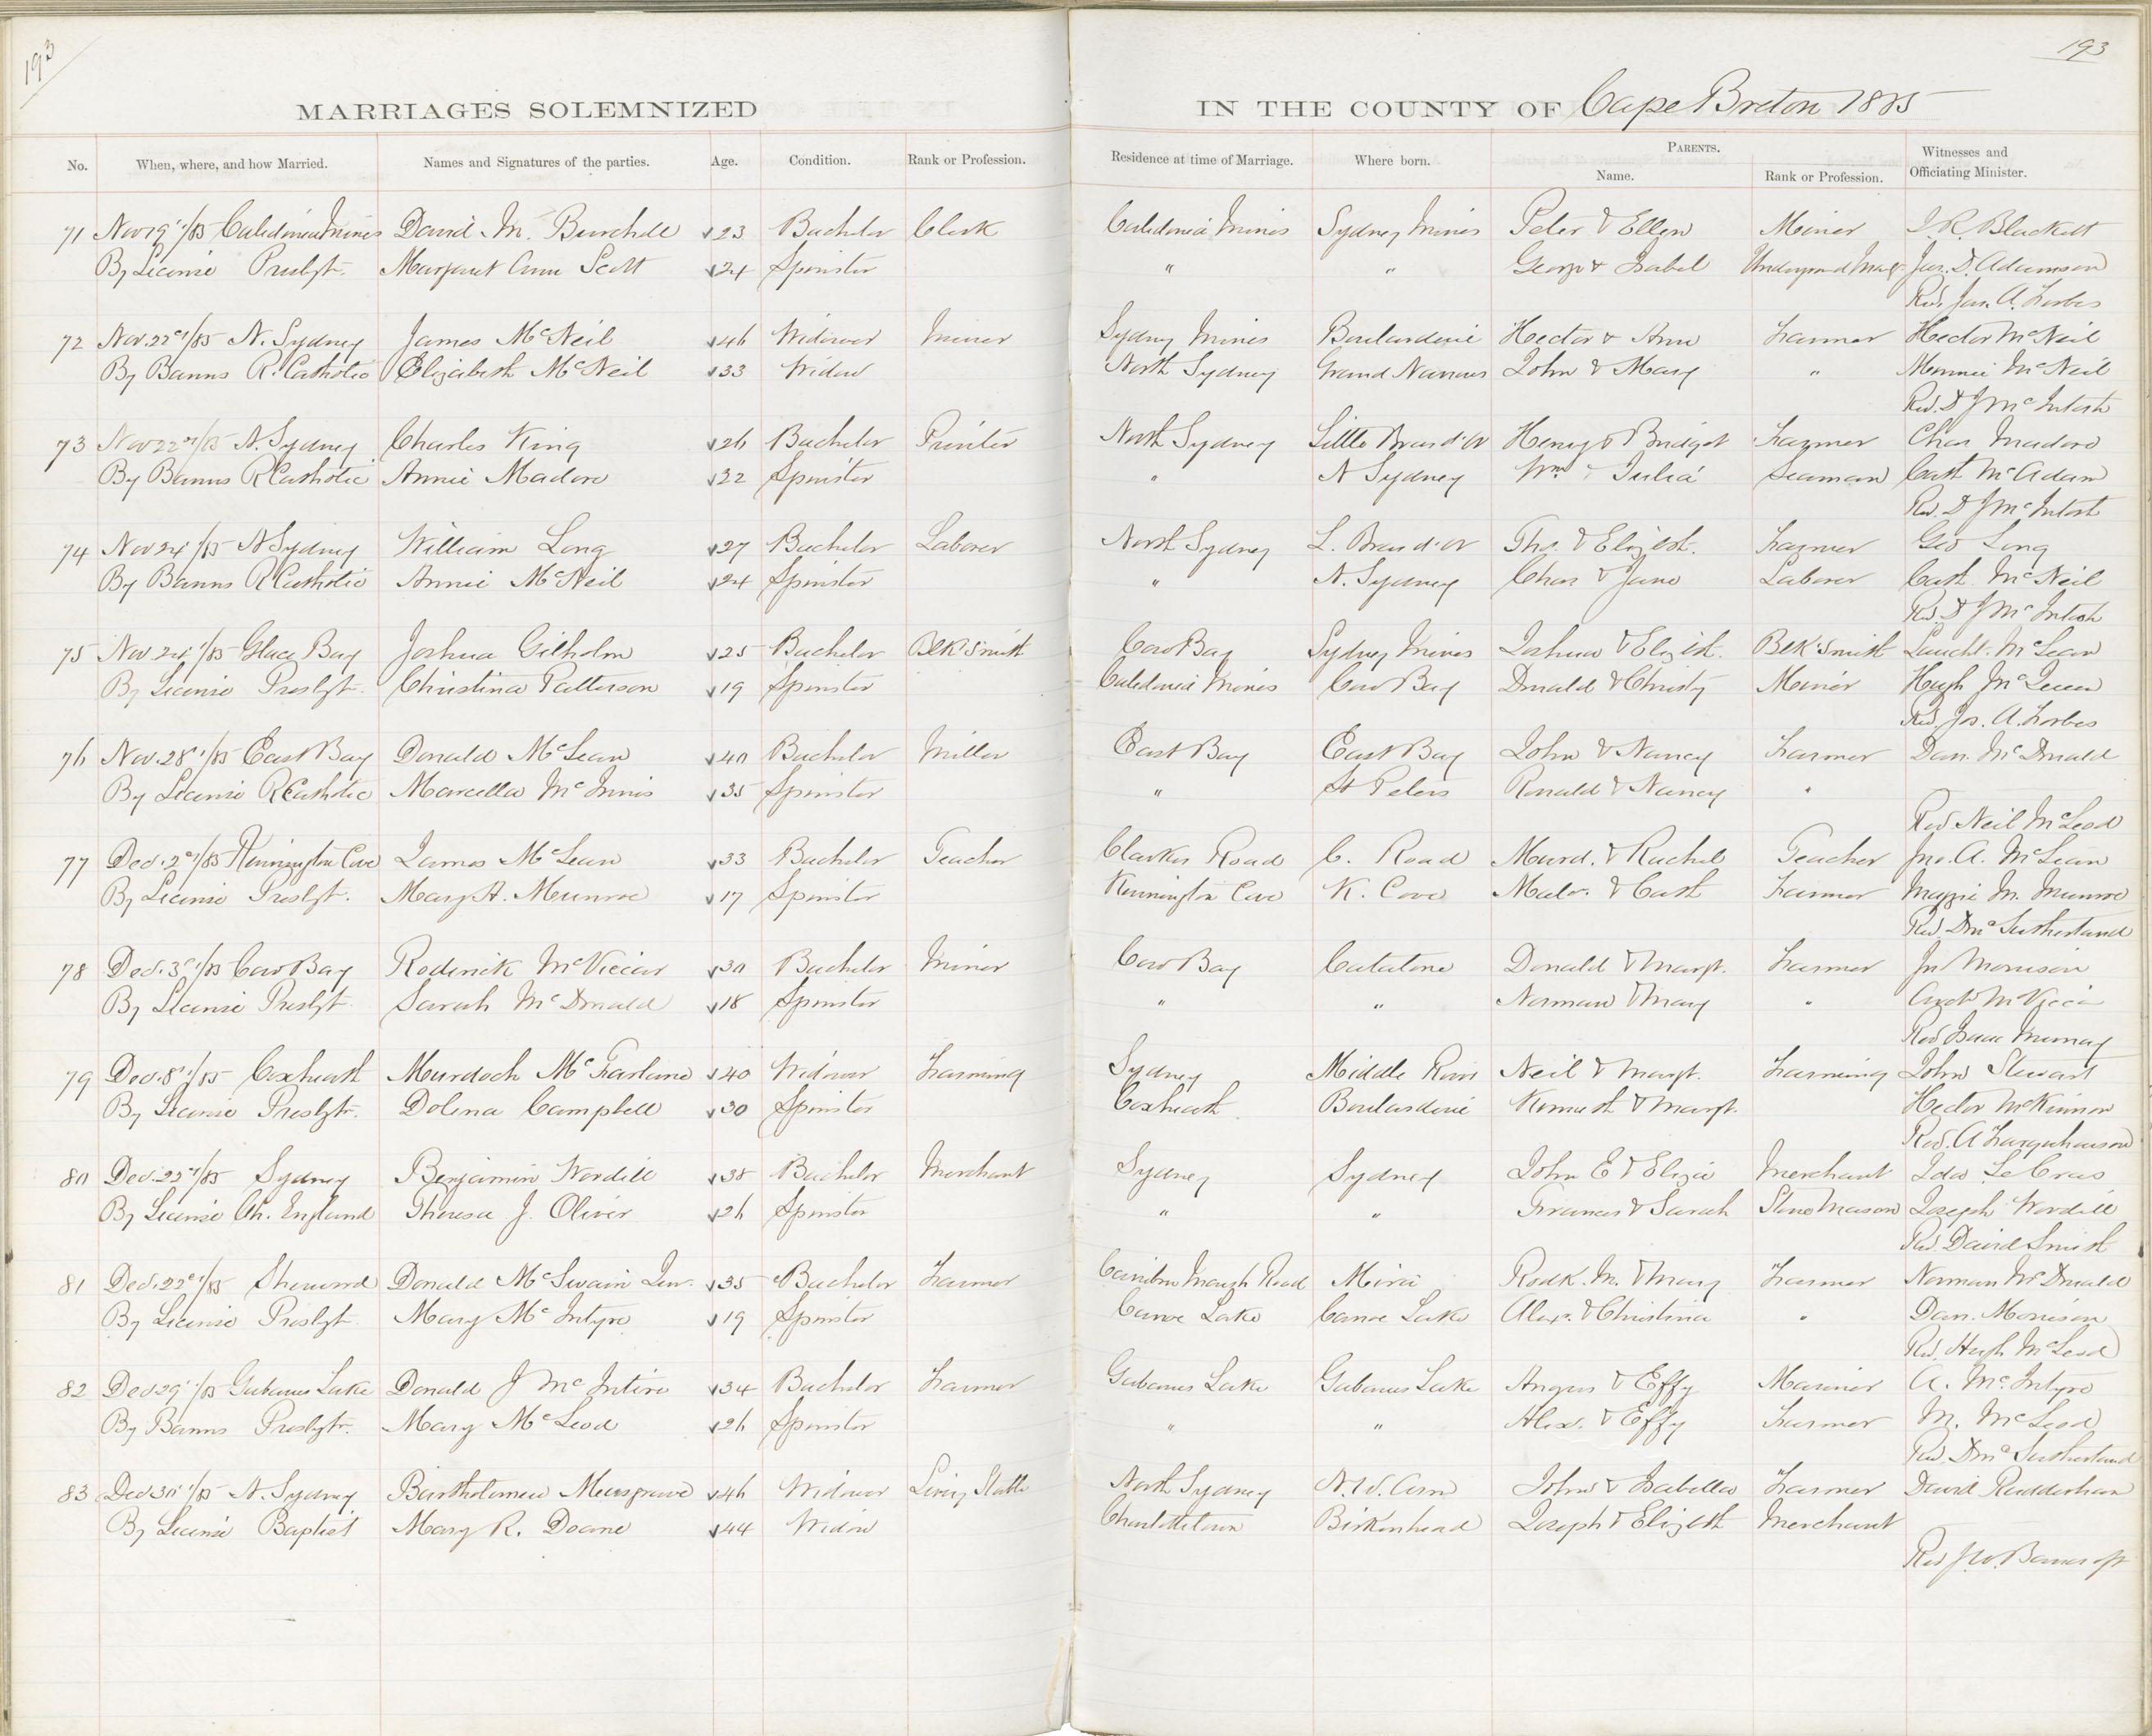 193
193
MARRIAGES SOLEMNIZED IN THE COUNTY OF Cape Breton 1885
No. When, where, and how Married. Names and Signatures of the parties. Age. Condition. Rank or Profession. Residence at time of Marriage. Where born. PARENTS. Name. Rank or Profession. Witnesses and Officiating Minister.
71 Nov 19/85 Caledonia Mines David M. Burchell 23 Bachelor Clerk Caledonia Mines Sydney Mines Peter & Ellen Miner J. R. Blackett
By License Presbyt. Margaret Ann Scott 24 Spinster " " George & Isabel Undergrnd Mang. Jas. D. Adamson
Rev. Jas. A. Forbes
72 Nov. 22d/85 N. Sydney James McNeil 46 Widower Miner Sydney Mines Boularderie Hector & Ann Farmer Hector McNeil
By Banns R. Catholic Elizabeth McNeil 33 Widow North Sydney Grand Narrows John & Mary " Minnie McNeil
Rev. D J McIntosh
73 Nov 22d/85 N. Sydney Charles King 26 Bachelor Printer North Sydney Little Bras d'or Henry & Bridget Farmer Chas Madore
By Banns R Catholic Annie Madore 22 Spinster " N Sydney Wm & Julia Seaman Cath McAdam
Rev. D J McIntosh
74 Nov 24/85 N Sydney William Long 27 Bachelor Laborer North Sydney L. Bras d'or Tho. & Elizbth. Farmer Geo Long
By Banns R Catholic Annie McNeil 24 Spinster " N. Sydney Chas & Jane Laborer Cath McNeil
Rev. D J McIntosh
75 Nov 24/85 Glace Bay Joshua Gilholm 25 Bachelor Blk Smith Cow Bay Sydney Mines Joshua & Elizbth. Blk Smith Lauchl. McLean
By License Presbyt. Christina Patterson 19 Spinster Caledonia Mines Cow Bay Donald & Christy Miner Hugh McLean
Rev. Jas. A. Forbes
76 Nov. 28/85 East Bay Donald McLean 40 Bachelor Miller East Bay East Bay John & Nancy Farmer Dan. McDonald
By License R Catholic Marcella McInnis 35 Spinster " St Peters Ronald & Nancy "
Rev Neil McLeod
77 Dec. 2d/85 Kennington Cove James McLean 33 Bachelor Teacher Clarkes Road C. Road Murd. & Rachel Teacher Jno. A. McLean
By License Presbyt. Mary A. Munroe 17 Spinster Kennington Cove K. Cove Malc. & Cath Farmer Maggie M. Munroe
Rev. Dd. Sutherland
78 Dec. 3d/85 Cow Bay Roderick McViccar 30 Bachelor Miner Cow Bay Catalone Donald & Margt. Farmer Jn Morrison
By License Presbyt Sarah McDonald 18 Spinster " " Norman & Mary "
Rev Isaac Murray
79 Dec. 8/85 Coxheath Murdoch McFarlane 40 Widower Farming Sydney Middle River Neil & Margt. Farming John Stewart
By License Presbyt. Dolena Campbell 30 Spinster Coxheath Boularderie Kenneth & Margt. Hector McKinnon
Rev. A Farquharson
80 Dec. 22d/85 Sydney Benjamin Wordill 38 Bachelor Merchant Sydney Sydney John E & Eliza Merchant Ida LeCras
By License Ch. England Theresa J. Oliver 26 Spinster " " Francis & Sarah Stone Mason Joseph Wordill
Rev. David Smith
81 Dec. 22d/85 Sherwood Donald McSwain Jun. 35 Bachelor Farmer Caribou Marsh Road Mira Rodk. M. & Mary Farmer Norman McDonald
By License Presbyt. Mary McIntyre 19 Spinster Canoe Lake Canoe Lake Alex. & Christina " Dan. Morrison
Rev. Hugh McLeod
82 Dec 29/85 Gabarus Lake Donald J McIntire 34 Bachelor Farmer Gabarus Lake Gabarus Lake Angus & Effy Mariner A. McIntyre
By Banns Presbyt. Mary McLeod 26 Spinster " " Alex. & Effy Farmer M. McLeod
Rev. Dd. Sutherland
83 Dec 30/85 N. Sydney Bartholomew Musgrave 46 Widower Livery Stable North Sydney N. W. Arm John & Isabella Farmer David Rudderham
By License Baptist Mary R. Doane 44 Widow Charlottetown Birkenhead Joseph & Elizbth Merchant
Rev J. W. Bancroft